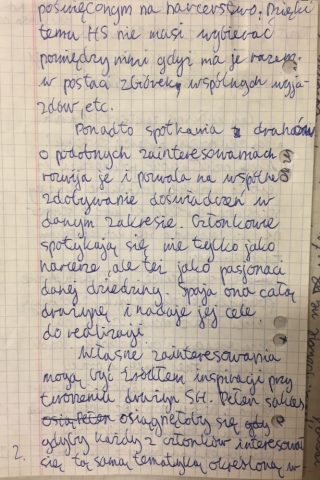 poświęconym na harcerstwo. Dzięki
temu HS nie musi wybierać
pomiędzy nimi gdyż ma je razem,
w postaci zbiórek, wspólnych wyja-
zdów, etc.
Ponadto spotkania z druhami
o podobnych zainteresowaniach
rozwija je i pozwala na wspólne
zdobywanie doświadczeń w
danym zakresie. Członkowie
spotykają się nie tylko jako
harcerze, ale też jako pasjonaci
danej dziedziny. Spaja ona całą
drużynę i nadaje jej cele
do realizacji
Własne zainteresowania
mogą być źródłem inspiracji przy
tworzeniu drużyn SH. Pełen sukces
osiągnęłoby się gdy
gdyby każdy z członków interesował
2. się tą samą tematyką określoną w